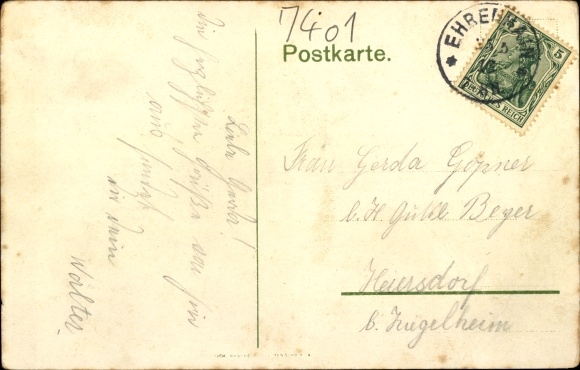 7401
Postkarte.
EHRENHAIN
5
DEUTSCHES REICH
Liebe Gerda!
Die herzlichsten Grüße von hier
aus sendet
Dir Dein
Walter
Frau Gerda Göpner
b. H. Beyer
Heiersdorf
b. Ziegelheim